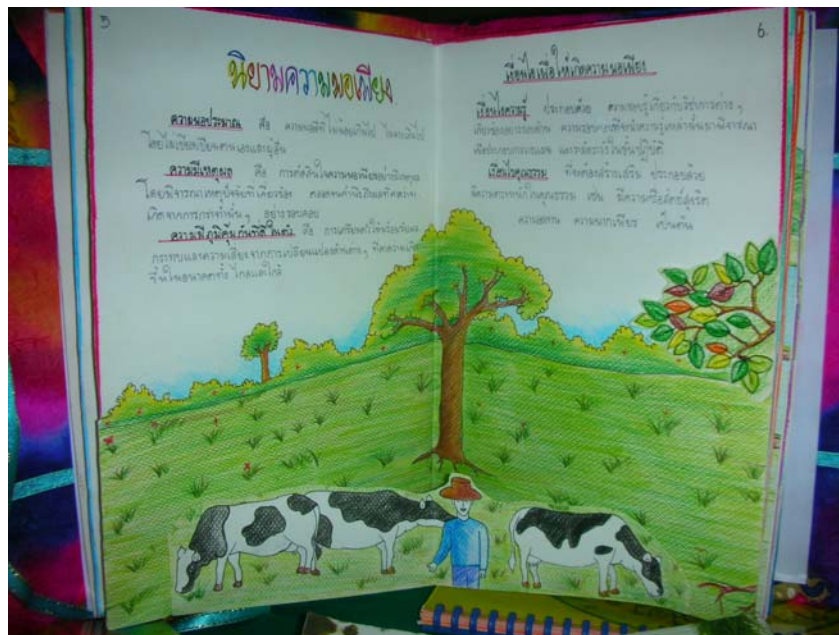 5
นิยามความพอเพียง
ความพอประมาณ คือ ความพอดีที่ไม่น้อยเกินไป ไม่มากเกินไป
โดยไม่เบียดเบียนตนเองและผู้อื่น
ความมีเหตุผล คือ การตัดสินใจความพอเพียงอย่างมีเหตุผล
โดยพิจารณาเหตุปัจจัยที่เกี่ยวข้อง ตลอดจนคำนึงถึงผลที่คาดว่าจะ
เกิดจากการกระทำนั้นๆ อย่างรอบคอบ
ความมีภูมิคุ้มกันที่ดีในตัว คือ การเตรียมตัวให้พร้อมรับผล
กระทบและความเสี่ยงจากการเปลี่ยนแปลงด้านต่างๆ ที่คาดว่าจะเกิด
ขึ้นในอนาคตทั้งไกลและใกล้
6.
เงื่อนไขเพื่อให้เกิดความพอเพียง
เงื่อนไขความรู้ ประกอบด้วย ความรอบรู้เกี่ยวกับวิชาการต่าง ๆ
เกี่ยวข้องอย่างรอบด้าน ความรอบคอบที่จะนำความรู้เหล่านั้นมาพิจารณา
เพื่อประกอบการวางแผน และระมัดระวังในขั้นปฏิบัติ
เงื่อนไขคุณธรรม ที่จะต้องสร้างเสริม ประกอบด้วย
มีความตระหนักในคุณธรรม เช่น มีความซื่อสัตย์สุจริต
ความอดทน ความพากเพียร เป็นต้น